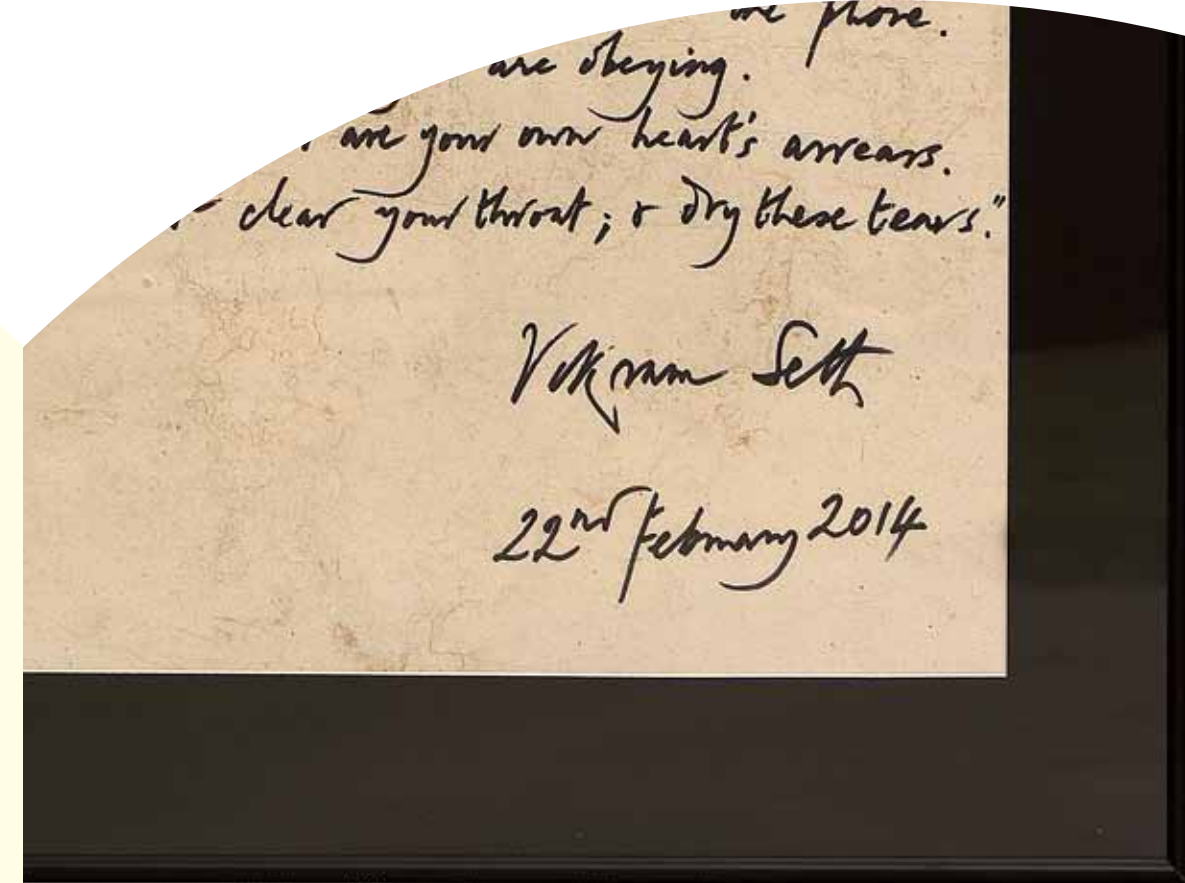 the phone.
are obeying.
are your own heart's arrears.
clear your throat; & dry these tears."
Vikram Seth
22nd February 2014